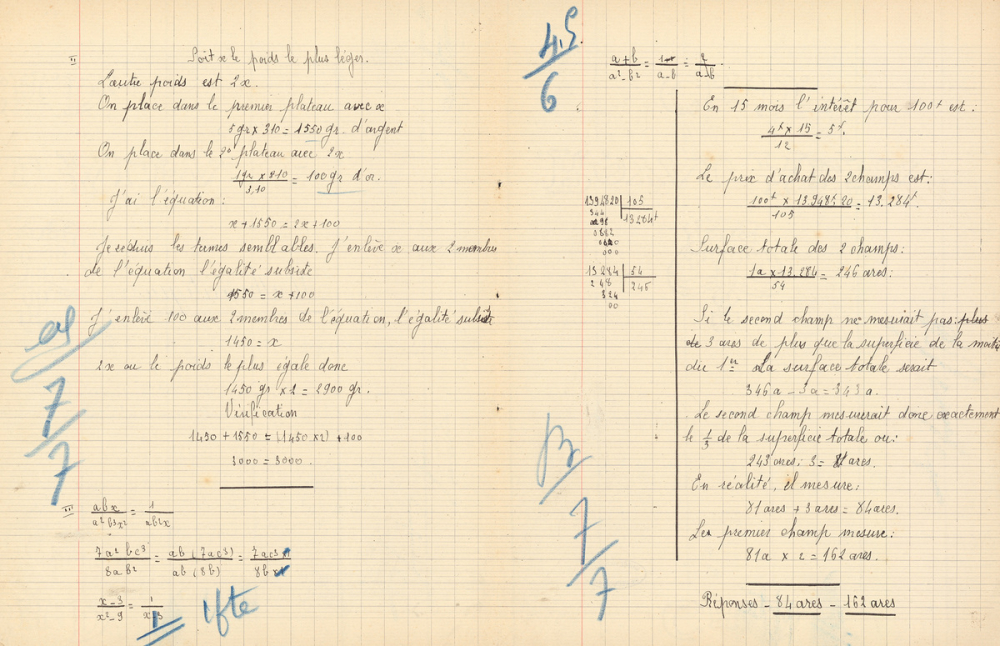 II Soit x le poids le plus léger.
L'autre poids est 2x.
On place dans le premier plateau avec x
5gr x 310 = 1550 gr. d'argent
On place dans le 2e plateau avec 2x
= 100 gr d'or.
3,10
J'ai l'équation:
x + 1550 = 2x + 100
Je réduis les termes semblables. J'enlève x aux 2 membres
de l'équation l'égalité subsiste
1550 = x + 100
J'enlève 100 aux 2 membres de l'équation, l'égalité subsiste
1450 = x
2x ou le poids le plus égale donc
1450 gr x 2 = 2900 gr.
Vérification
1450 + 1550 = (1450 x 2) + 100
3000 = 3000.
7
7
abx / a²b³x² = 1 / ab²x
7a²bc³ / 8ab² = ab (7ac³) / ab (8b) = 7ac³ / 8b
x-3 / x²-9 = 1 / x+3
4,5
6
a+b / a²-b² = 1 / a-b
En 15 mois l'intérêt pour 100f est:
4f x 15 / 12 = 5f.
Le prix d'achat des 2 champs est:
100f x 13.948f,20 / 105 = 13.284f.
1394820 | 105
13284f
Surface totale des 2 champs:
1a x 13.284 / 54 = 246 ares:
13284 | 54
248 | 246
324
00
Si le second champ ne mesurait pas plus
de 3 ares de plus que la superficie de la moitié
du 1er La surface totale serait
346a - 3a = 343a.
Le second champ mesurerait donc exactement
le 1/3 de la superficie totale ou:
243 ares: 3 = 81 ares.
En réalité, il mesure:
81 ares + 3 ares = 84 ares.
Le premier champ mesure:
81a x 2 = 162 ares.
7
7
Réponses - 84 ares - 162 ares